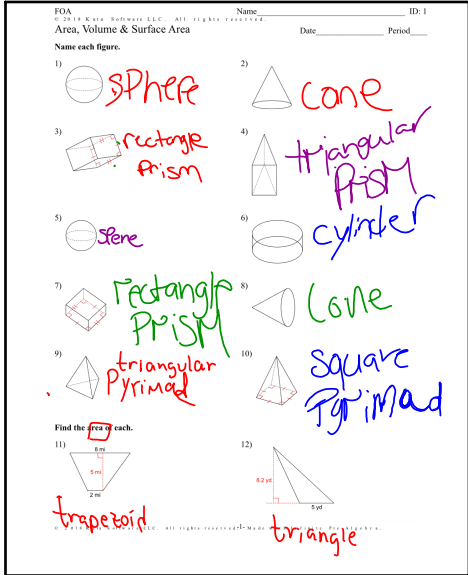 FOA Name ID: 1
© 2018 Kuta Software LLC. All rights reserved.
Area, Volume & Surface Area Date Period
Name each figure.
1) sphere 2) cone
3) rectangle prism 4) triangular prism
5) Sfene 6) cylinder
7) rectangle prism 8) cone
9) triangular Pyrimad 10) Square Pyrimad
Find the area of each.
11) 12)
8 mi
5 mi 8.2 yd
2 mi 5 yd
trapezoid triangle
LLC. All rights reserved. -1- Made Pre-Algebra.